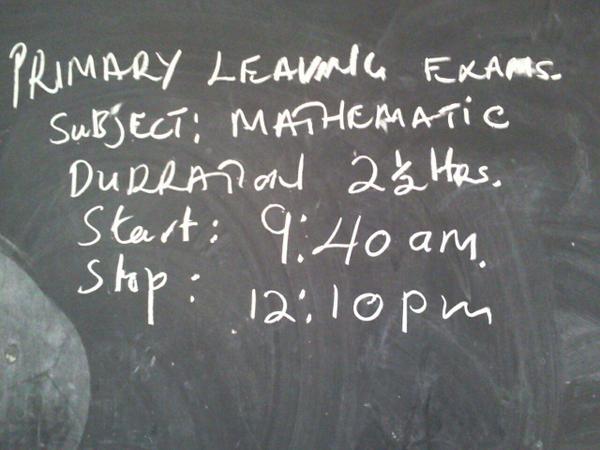 PRIMARY LEAVING EXAMS.
SUBJECT: MATHEMATIC
DURRATION 2½ Hrs.
Start: 9:40 am.
Stop: 12:10 pm